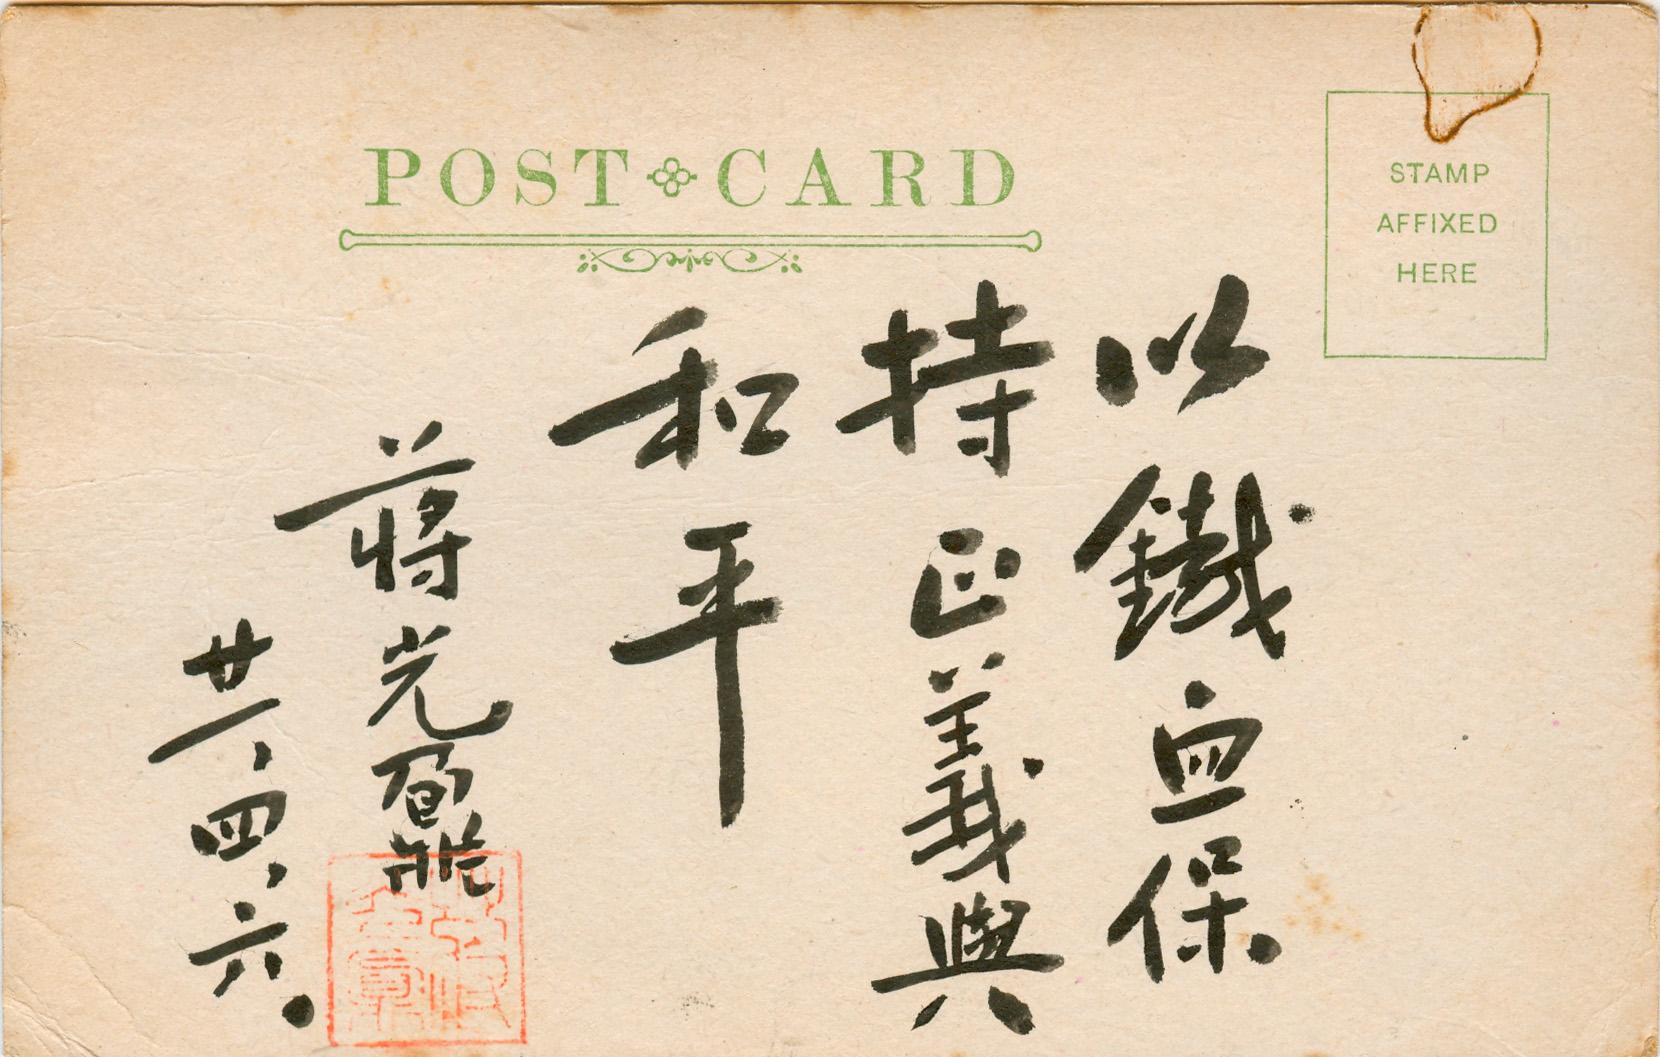 POST CARD
STAMP
AFFIXED
HERE
以鐵血保
持正義與
和平
蔣光鼐
廿一、四、六.